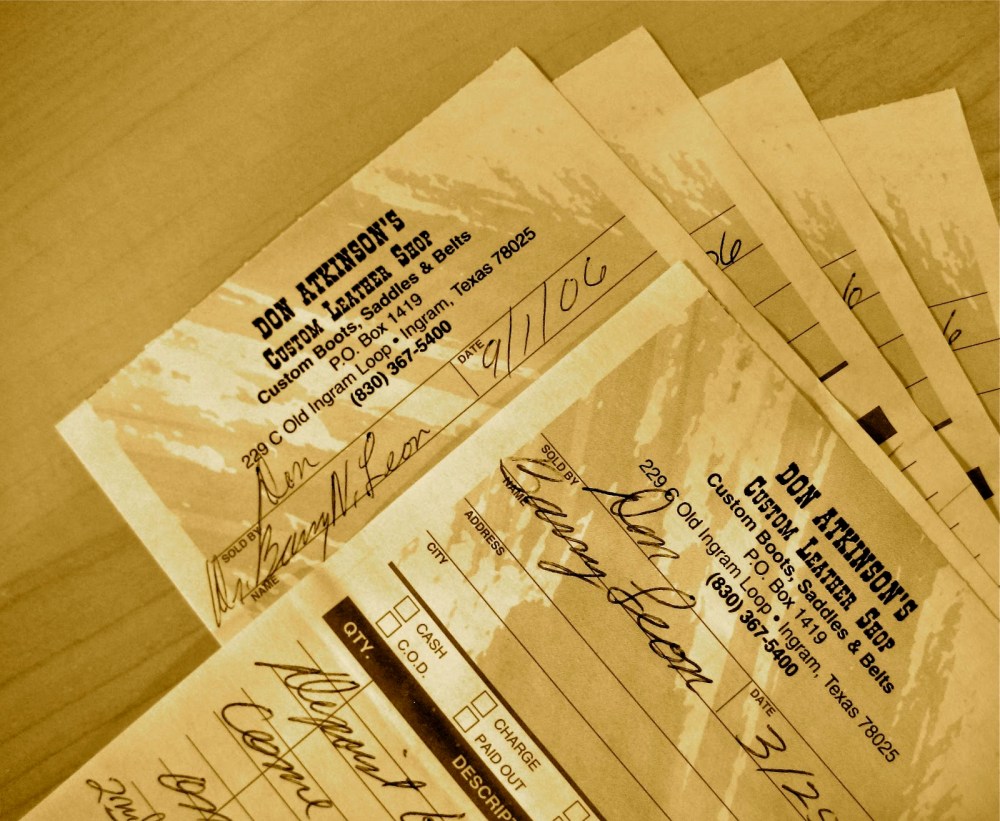 DON ATKINSON'S
CUSTOM LEATHER SHOP
Custom Boots, Saddles & Belts
P.O. Box 1419
229 C Old Ingram Loop • Ingram, Texas 78025
(830) 367-5400
SOLD BY Don DATE 9/1/06
NAME Dr. Barry N. Leon
06
6
6
DON ATKINSON'S
CUSTOM LEATHER SHOP
Custom Boots, Saddles & Belts
P.O. Box 1419
229 C Old Ingram Loop • Ingram, Texas 78025
(830) 367-5400
SOLD BY Don DATE 3/2
NAME Barry Leon
ADDRESS
CITY
CASH CHARGE
C.O.D. PAID OUT
QTY. DESCRIP
Deposit
Come
2nd